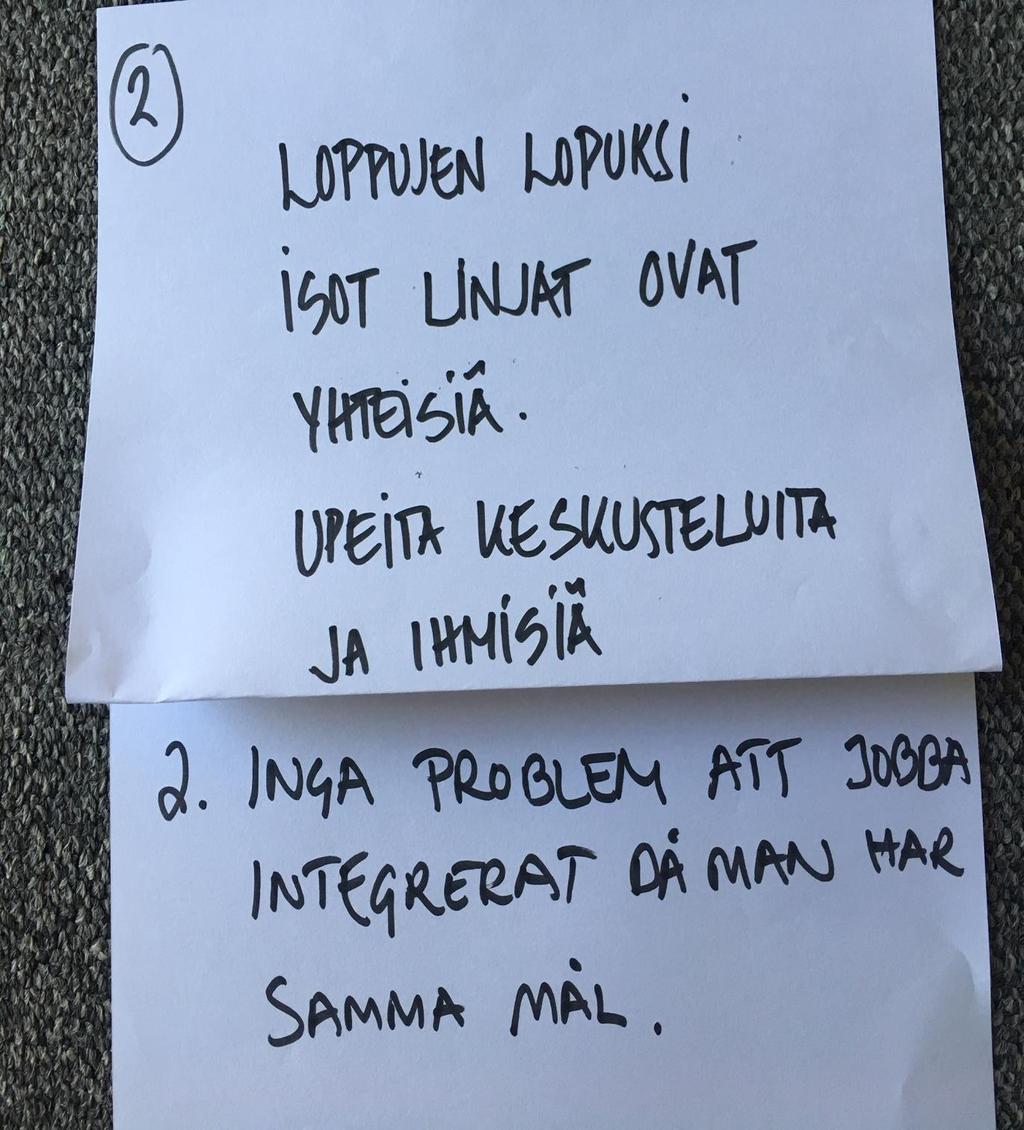 2
LOPPUJEN LOPUKSI
ISOT LINJAT OVAT
YHTEISIÄ.
UPEITA KESKUSTELUITA
JA IHMISIÄ
2. INGA PROBLEM ATT JOBBA
INTEGRERAT DÅ MAN HAR
SAMMA MÅL.